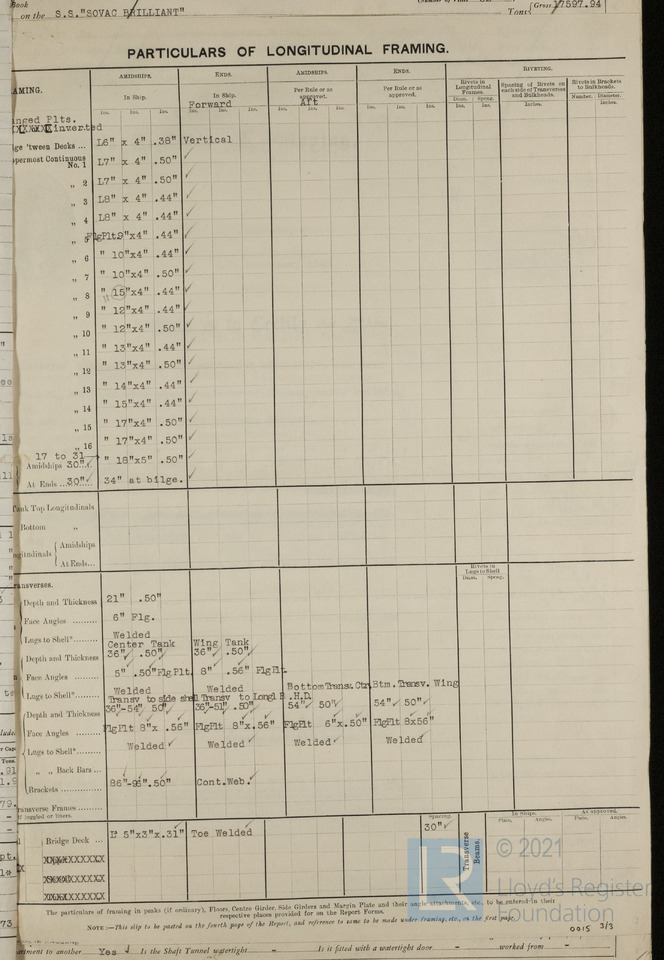 Book
on the S.S."SOVAC BRILLIANT" Tons {Gross 17597.94
PARTICULARS OF LONGITUDINAL FRAMING.
AMING. AMIDSHIPS. ENDS. AMIDSHIPS. ENDS. RIVETING.
In Ship. In Ship. Per Rule or as approved. Per Rule or as approved. Rivets in Longitudinal Frames. Spacing of Rivets on each side of Transverses and Bulkheads. Rivets in Brackets to Bulkheads.
Forward Aft
Ins. Ins. Ins. Ins. Ins. Ins. Ins. Ins. Ins. Ins. Ins. Ins. Diam. Spcng. Inches. Number. Diameter.
Ins. Ins. Inches.
anged Plts.
inverted
ge 'tween Decks ... L6" x 4" .38" Vertical
ppermost Continuous
No. 1 L7" x 4" .50" ✓
„ 2 L7" x 4" .50" ✓
„ 3 L8" x 4" .44" ✓
„ 4 L8" x 4" .44" ✓
„ 5 FlgPlt9"x4" .44" ✓
„ 6 " 10"x4" .44" ✓
„ 7 " 10"x4" .50" ✓
„ 8 " 15"x4" .44" ✓
„ 9 " 12"x4" .44" ✓
„ 10 " 12"x4" .50" ✓
„ 11 " 13"x4" .44" ✓
„ 12 " 13"x4" .50" ✓
„ 13 " 14"x4" .44" ✓
„ 14 " 15"x4" .44" ✓
„ 15 " 17"x4" .50" ✓
„ 16 " 17"x4" .50" ✓
17 to 31
Amidships 30" ✓ " 18"x5" .50" ✓
At Ends ... 30" ✓ 34" at bilge. ✓
Tank Top Longitudinals
Bottom „
ngitudinals { Amidships
At Ends...
Rivets in Lugs to Shell
Diam. Spcng.
ransverses.
Depth and Thickness 21" .50"
Face Angles ......... 6" Flg.
Lugs to Shell*......... Welded
Center Tank Wing Tank
Depth and Thickness 36" ✓ .50" ✓ 36" ✓ .50" ✓
Face Angles ......... 5" .50"FlgPlt. 8" .56" FlgPlt.
Lugs to Shell*......... Welded Welded Bottom Transv. Ctr. Btm. Transv. Wing
Transv to side shell Transv to Longl B.H.D.
Depth and Thickness 36"-54" 50" 36"-51" .50" 54" 50" ✓ 54" 50" ✓
Face Angles ......... FlgPlt 8"x .56" FlgFlt 8"x.56" FlgFlt 6"x.50" FlgFlt 8x56"
Lugs to Shell*......... Welded ✓ Welded ✓ Welded ✓ Welded ✓
„ „ Back Bars ...
Brackets ............... Cont.Web.
ransverse Frames .........
if joggled or liners.
Spacing. In Ship. As approved.
Plate. Angles. Plate. Angles.
Bridge Deck ... 5"x3"x.31" Toe Welded 30" ✓ Transverse Beams.
© 2021
Lloyd's Register
Foundation
The particulars of framing in peaks (if ordinary), Floors, Centre Girder, Side Girders and Margin Plate and their angle attachments, etc., to be entered in their
respective places provided for on the Report Forms.
NOTE :—This slip to be pasted on the fourth page of the Report, and reference to same to be made under framing, etc., on the first page.
0015 3/3
artment to another Yes ✓ Is the Shaft Tunnel watertight - Is it fitted with a watertight door - worked from -